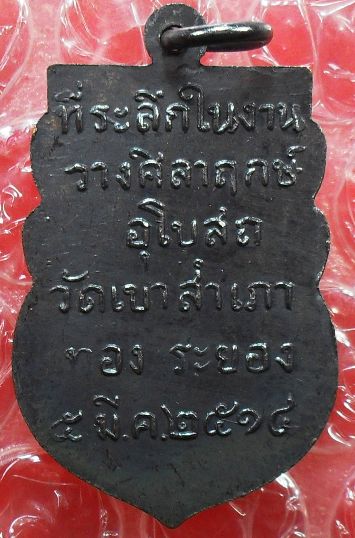 ที่ระลึกในงาน
วางศิลาฤกษ์
อุโบสถ
วัดเขาสำเภา
ทอง ระยอง
๕ มี.ค.๒๕๑๔